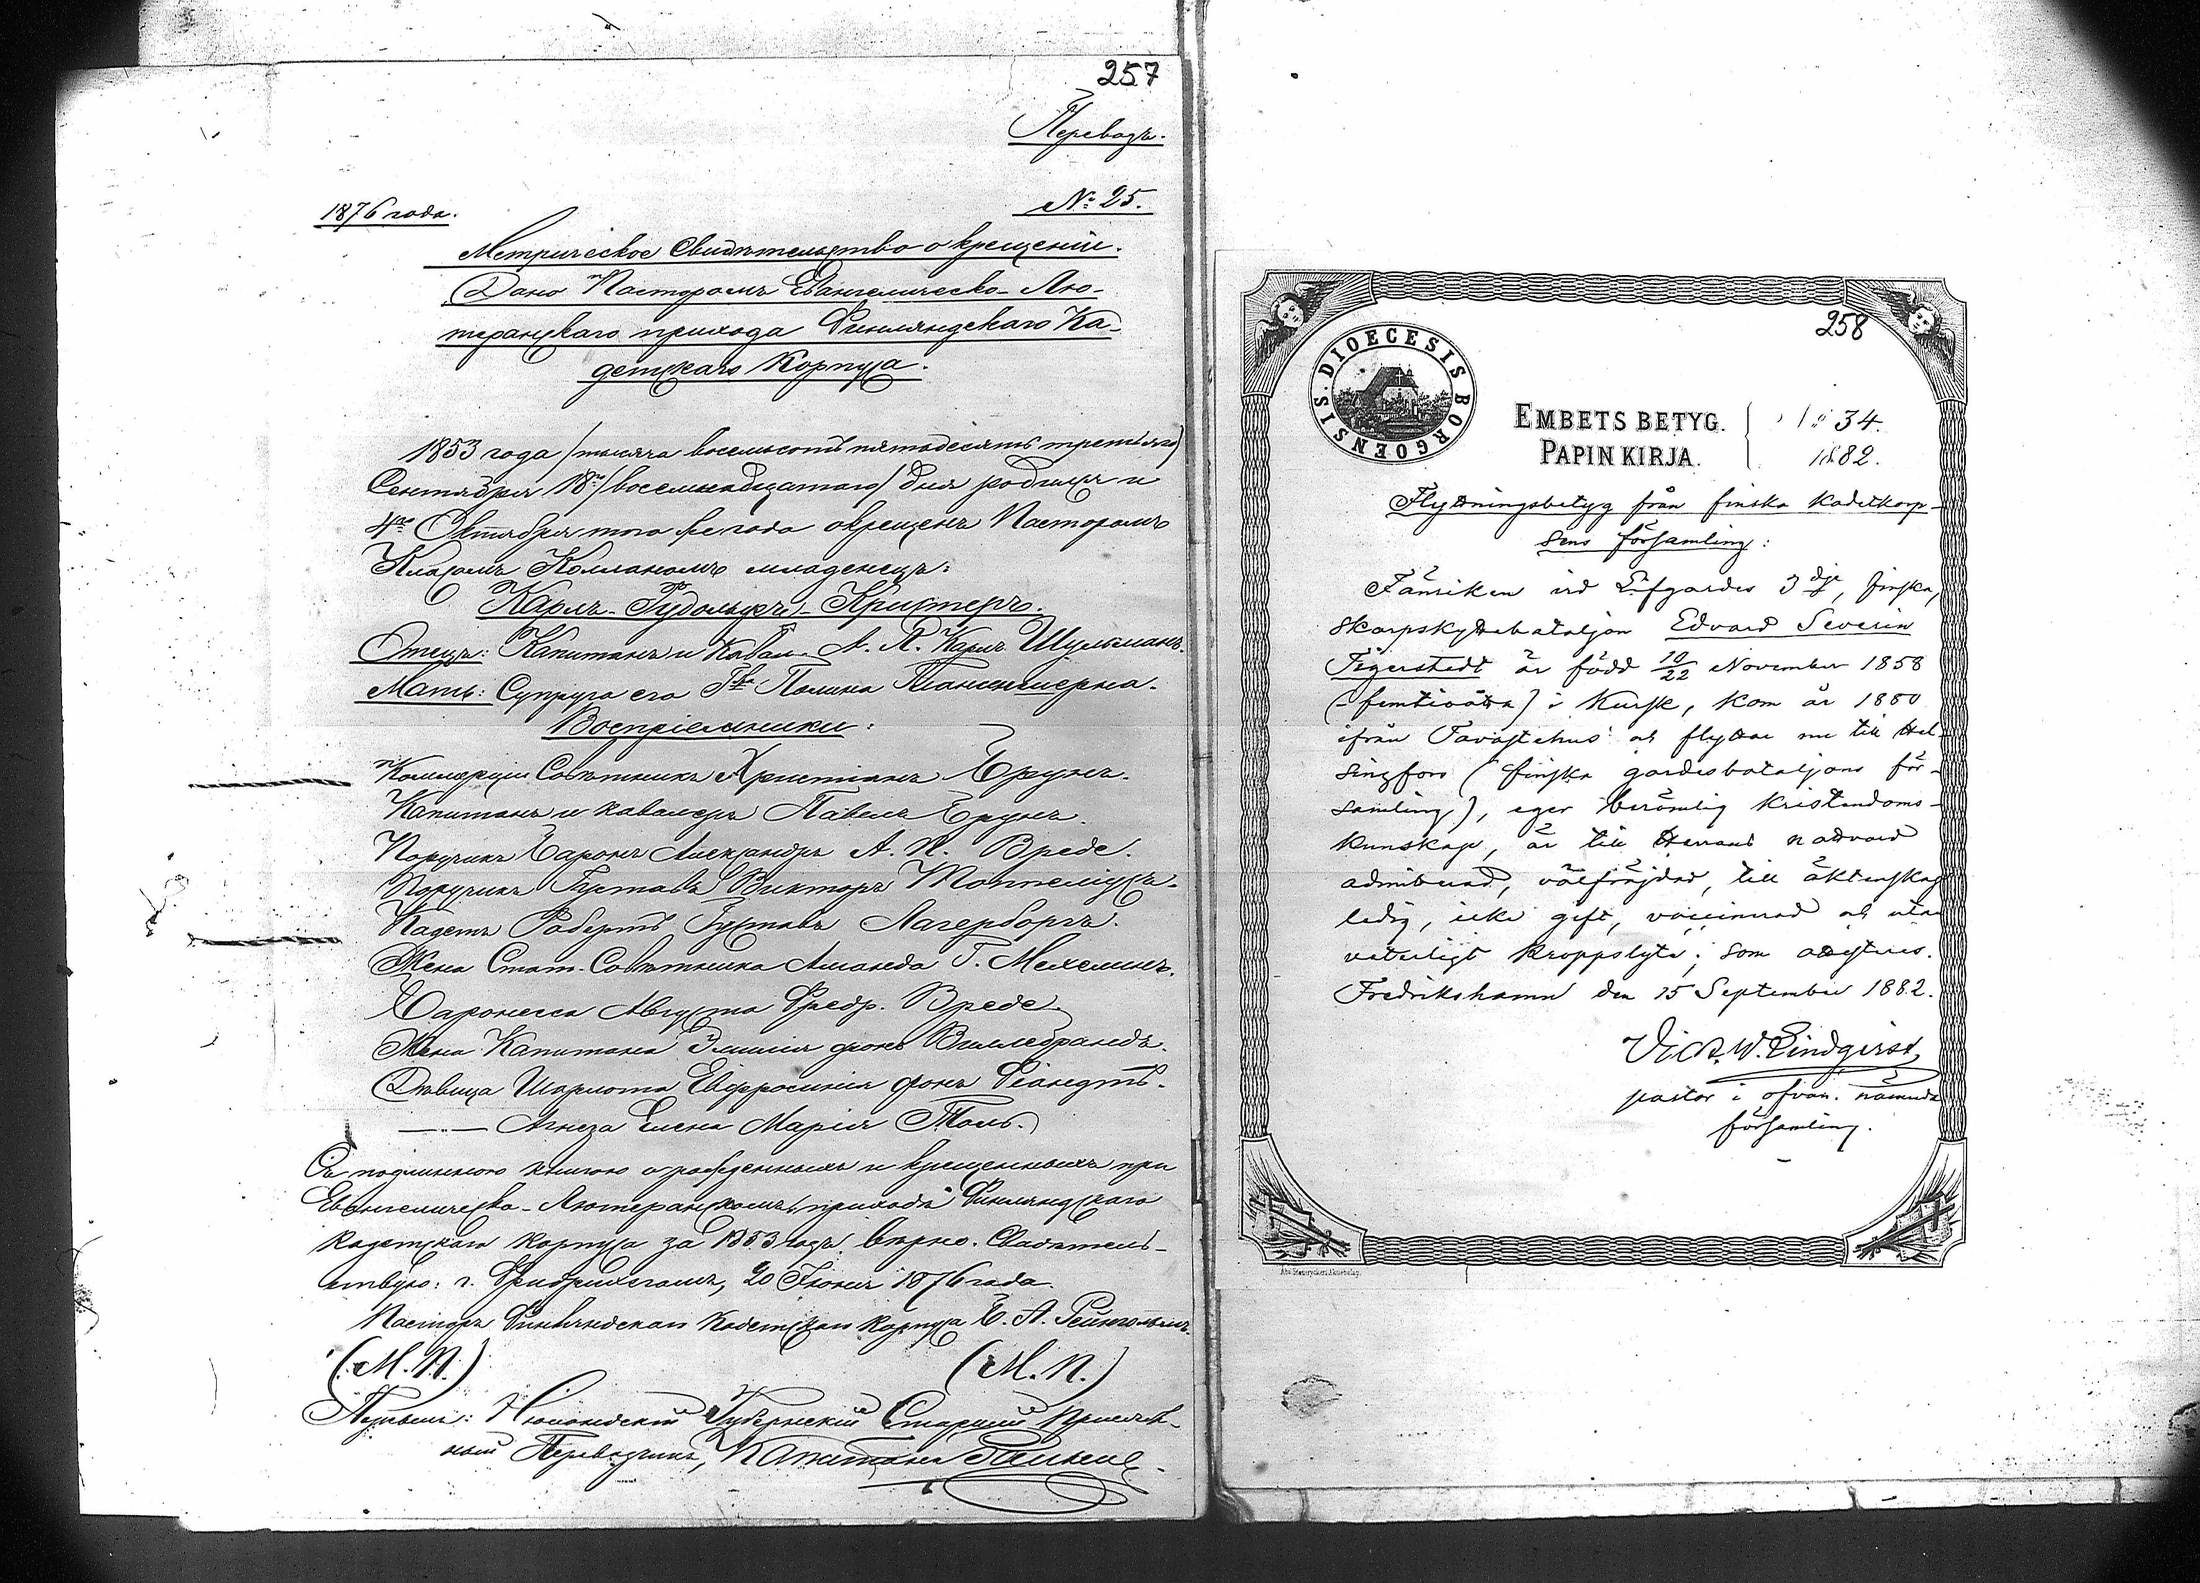 257
Переводъ.
1876 года.
№ 25.
Метрическое Свидѣтельство о крещеніи.
Дано Пасторомъ Евангелическо-Лю-
теранскаго прихода Финляндскаго Ка-
детскаго Корпуса.
1853 года /тысяча восемьсотъ пятьдесятъ третьяго/
Сентября 18го /восемнадцатаго/ дня родился и
4го Октября того же года окрещенъ Пасторомъ
Класомъ Колланомъ младенецъ:
Карлъ-Рудольфъ-Кристеръ.
Отецъ: Капитанъ и Кавал. А. Л. Карлъ Шульманъ.
Мать: Супруга его Полина
Воспріемники:
Коммерціи Совѣтникъ Христіанъ Брунъ.
Капитанъ и кавалеръ Павелъ Брунъ.
Поручикъ Баронъ Александръ А. К. Вреде.
Поручикъ Густавъ Викторъ
Кадетъ Робертъ Густавъ Лагерборгъ.
Жена Стат. Совѣтника Аманда Г. Мехелинъ.
Баронесса Августа Фредр. Вреде.
Жена Капитана Эмилія фонъ Виллебрандъ.
Дѣвица Шарлота Евфросинія фонъ Фіандтъ.
—„— Агнеза Елена Марія Толь.
Съ подлинною книгою о рожденныхъ и крещенныхъ при
Евангелическо-Лютеранскомъ приходѣ Финляндскаго
кадетскаго корпуса за 1853 годъ вѣрно. Свидѣтель-
ствую: г. Фридрихсгамъ, 20 Іюня 1876 года.
Пасторъ Финляндскаго Кадетскаго корпуса
(М. П.)
(М. П.)
Нюландскій Губернскій Старшій Присяж-
ный Переводчикъ, Капитанъ
258
DIOECESIS BORGOENSIS
EMBETS BETYG.
PAPIN KIRJA.
34.
1882.
Flyttningsbetyg från finska Kadettkorp-
sens församling:
Fänriken vid Lifgardes 3dje, finska,
skarpskyttebataljon Edvard Severin
Tigerstedt är född 10/22 November 1858
(-femtioåtta) i Kursk, kom år 1880
ifrån Tavastehus och flyttar nu till Hel-
singfors (finska gardesbataljons för-
samling), eger berömlig kristendoms-
kunskap, är till Herrans nattvard
admitterad, välfrejdad, till äktenskap
ledig, icke gift, vaccinerad och utan
veterligt kroppslyte; som attesteras.
Fredrikshamn den 15 September 1882.
Vict. W. Lindqvist,
pastor i ofvan. nämnda
församling.